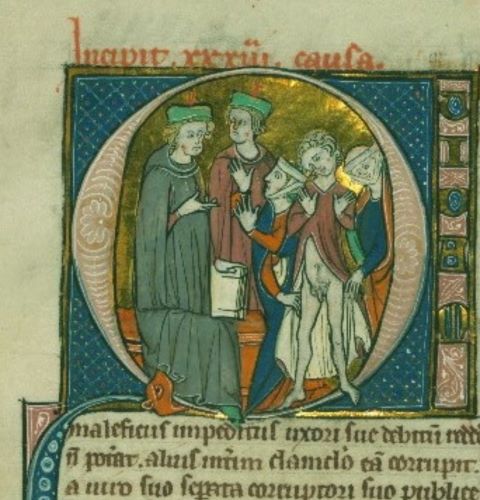 Incipit. xxxiii. causa.
QUIDAM
maleficiis impeditus uxori sue debitū redd
n̄ pot̄at. alius int̄im clanclo eā corrupit.
a uiro suo sep̱ata corruptori suo publice